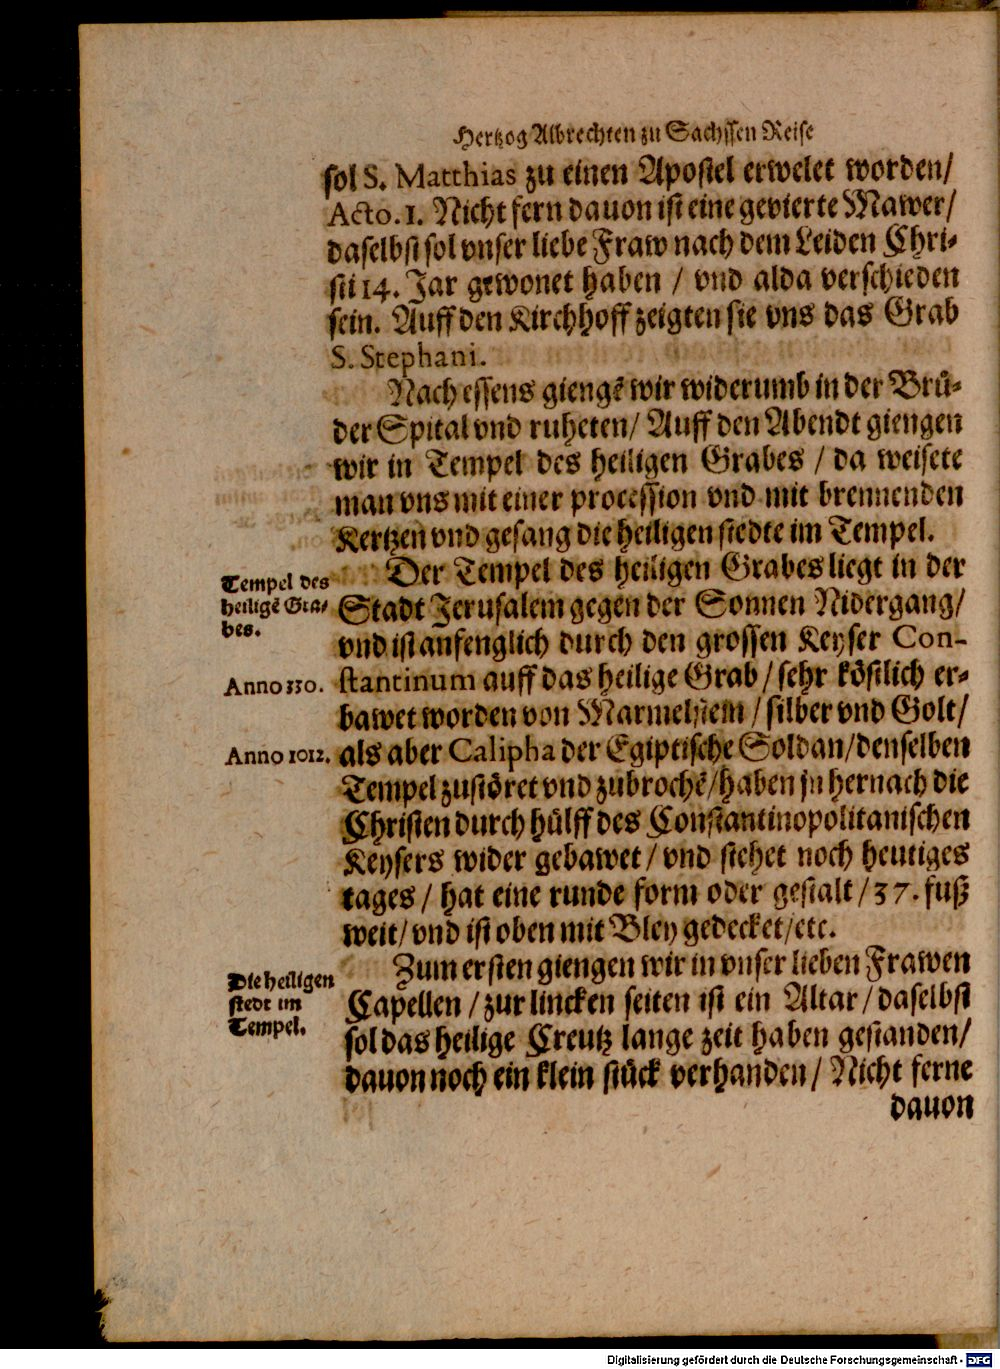 Hertzog Albrechten zu Sachssen Reise
sol S. Matthias zu einen Apostel erwelet worden/
Acto. 1. Nicht fern dauon ist eine gevierte Mawer/
daselbst sol vnser liebe Fraw nach dem Leiden Chri-
sti 14. Jar gewonet haben / vnd alda verschieden
sein. Auff den Kirchhoff zeigten sie vns das Grab
S. Stephani.
Nach essens giengẽ wir widerumb in der Brů-
der Spital vnd ruheten/ Auff den Abendt giengen
wir in Tempel des heiligen Grabes / da weisete
man vns mit einer procession vnd mit brennenden
Kertzen vnd gesang die heiligen stedte im Tempel.
Tempel des
heiligẽ Gra-
bes.
Der Tempel des heiligen Grabes liegt in der
Stadt Jerusalem gegen der Sonnen Nidergang/
vnd ist anfenglich durch den grossen Keyser Con-
Anno 330.
stantinum auff das heilige Grab / sehr kőstlich er-
bawet worden von Marmelstem / silber vnd Golt/
Anno 1012.
als aber Calipha der Egiptische Soldan/denselben
Tempel zustőret vnd zubrochẽ/haben jn hernach die
Christen durch hůlff des Constantinopolitanischen
Keysers wider gebawet / vnd stehet noch heutiges
tages / hat eine runde form oder gestalt / 37. fuß
weit/ vnd ist oben mit Bley gedecket/etc.
Die heiligen
stedt im
Tempel.
Zum ersten giengen wir in vnser lieben Frawen
Capellen / zur lincken seiten ist ein Altar / daselbst
sol das heilige Creutz lange zeit haben gestanden/
dauon noch ein klein stůck verhanden / Nicht ferne
dauon
Digitalisierung gefördert durch die Deutsche Forschungsgemeinschaft - DFG